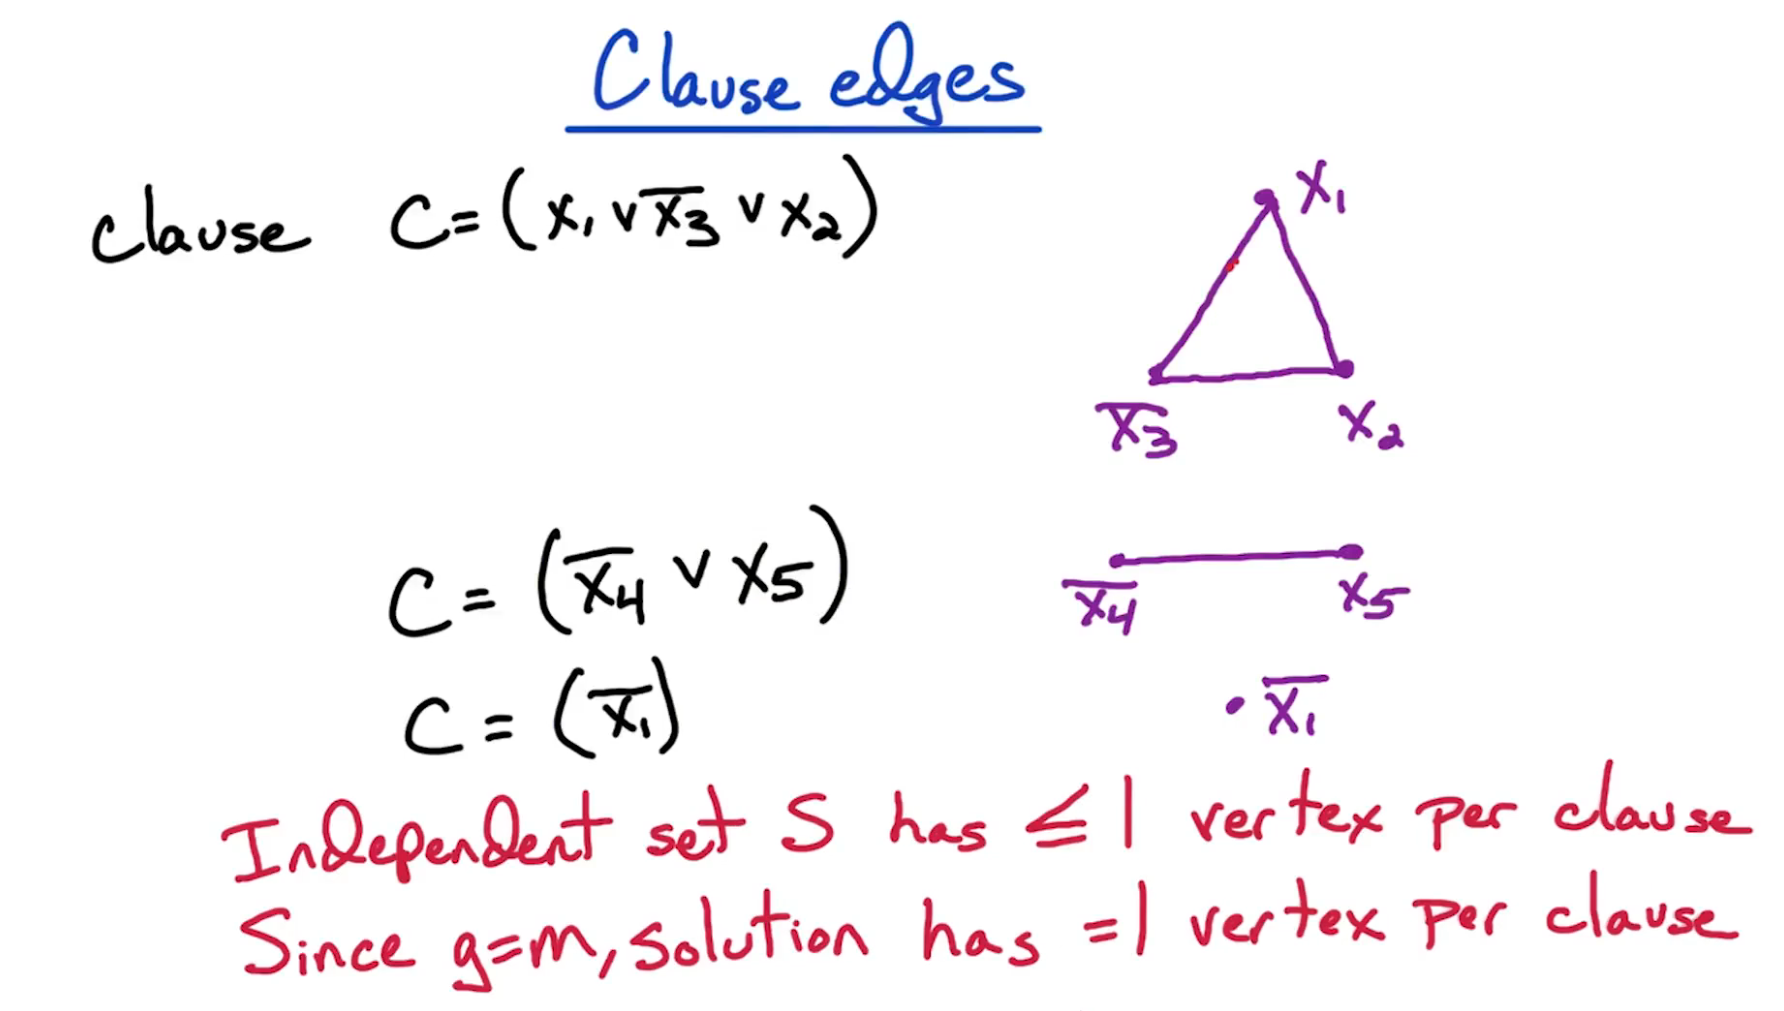 Clause edges
clause C = (x₁ ∨ x̅₃ ∨ x₂)
x₁
x̅₃ x₂
C = (x̅₄ ∨ x₅)
x̅₄ x₅
C = (x̅₁)
x̅₁
Independent set S has ≤ 1 vertex per clause
Since g=m, solution has =1 vertex per clause